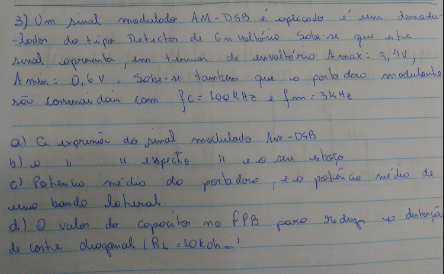 3) Um sinal modulado AM-DSB é aplicado é um demodu-
-lador do tipo Detector de Envoltório Sabe-se que este
sinal apresenta, em termos de envoltório Amax = 3,4V,
Amin = 0,6V. Sabe-se também que o portadora modulante
são cossenoidais com fc = 100kHz e fm = 3kHz
a) A expressão do sinal modulado AM-DSB
b) o " " espectro " e o seu esboço
c) Potência média da portadora, e a potência média de
uma banda lateral
d) O valor do capacitor no FPB para reduzir a distorção
de corte diagonal (RL = 10kohm)